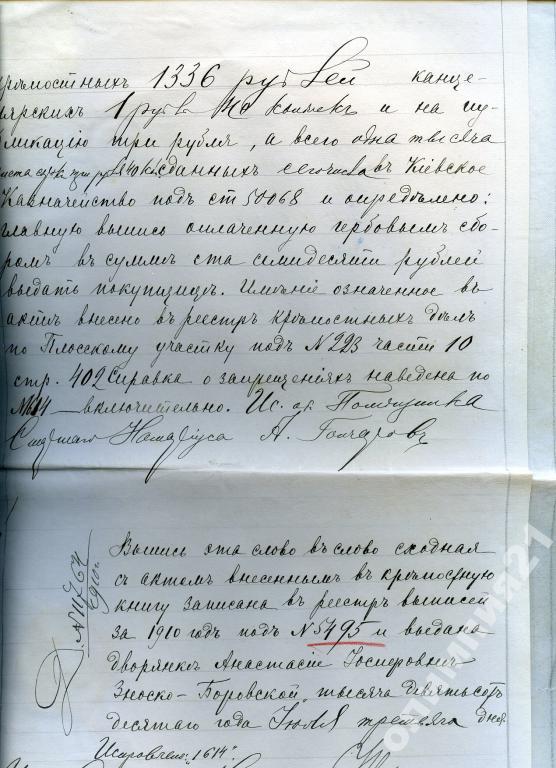 крѣпостныхъ 1336 рублей канце-
лярскихъ 1 рубль 40 копѣекъ и на пу-
бликацію три рубля, а всего одна тысяча
триста сорокъ руб. 40 к. сданныхъ сего числа въ Кіевское
Казначейство подъ ст 50068 и опредѣлено:
главную выпись оплаченную гербовымъ сбо-
ромъ въ суммѣ ста семидесяти рублей
выдать покупщицѣ. Имѣніе означенное въ
актѣ внесено въ реестръ крѣпостныхъ дѣлъ
по Плосскому участку подъ N 223 части 10
стр. 402 Справка о запрещеніяхъ наведена по
включительно. Ис. об. Помощника
Старшаго Нотаріуса А. Гончаровъ
Выпись эта слово въ слово сходная
съ актомъ внесеннымъ въ крѣпостную
книгу записана въ реестръ выписей
за 1910 годъ подъ N 5495 и выдана
дворянкѣ Анастасіи Іосифовнѣ
Зноско-Боровской, тысяча девятьсотъ
десятаго года Іюля третьяго дня.
Исправлено: "1614".
олимпия21